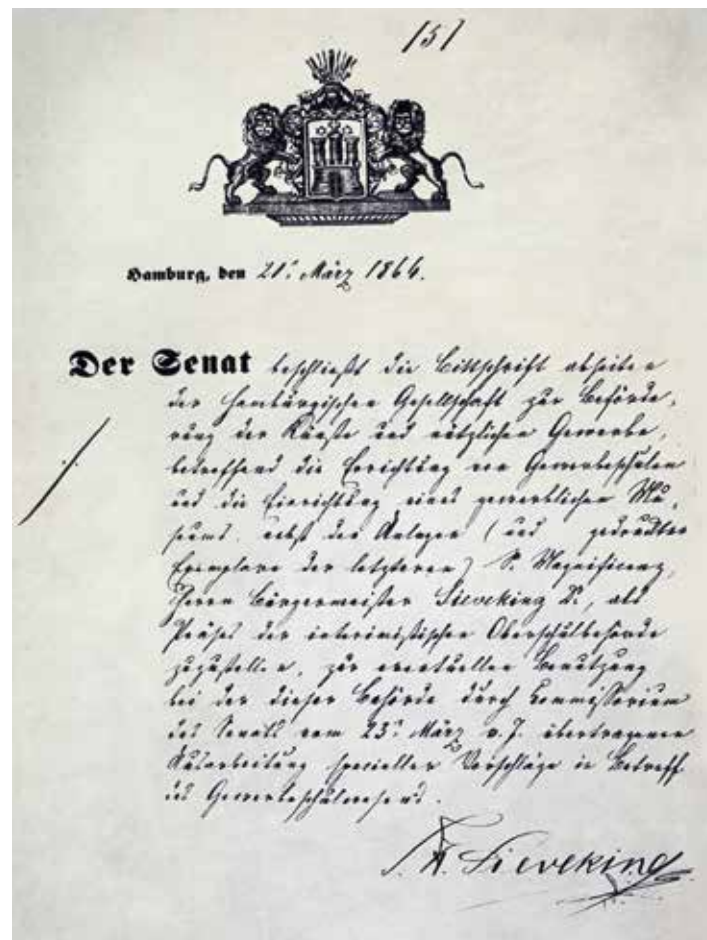 151
Hamburg, den 21. März 1864.
Der Senat beschließt die Bittschrift abseiten
der Hamburgischen Gesellschaft zur Beförde-
rung der Künste und nützlichen Gewerbe,
betreffend die Errichtung von Gewerbeschulen
und die Einrichtung eines gewerblichen Mu-
seums nebst den Anlagen (und gedruckten
Exemplare der letzteren) S. Magnificenz,
Herrn Bürgermeister Sieveking Dr., als
Präses der interimistischen Oberschulbehörde
zuzustellen, zur eventuellen Benutzung
bei der dieser Behörde durch Commissorium
des Senats vom 23n März v. J. übertragenen
Ausarbeitung specieller Vorschläge in Betreff
des Gewerbeschulwesens.
Sieveking